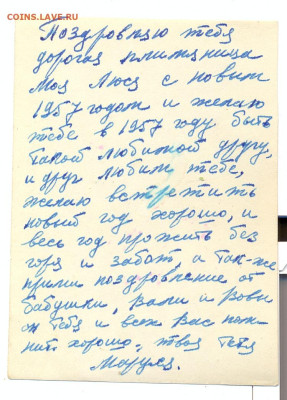 COINS.LAVE.RU
Поздровляю тебя
дорогая племяница
моя Люся с новым
1957 годом и желаю
тебе в 1957 году быть
такой любимой другу,
и друг любим тебе,
желаю встретить
новый год хорошо, и
весь год прожить без
горя и забот, и так-же
прими поздровление от
бабушки, Вали и Вовы
он тебя и всех вас пом-
нит хорошо, твоя тётя
Маруся.